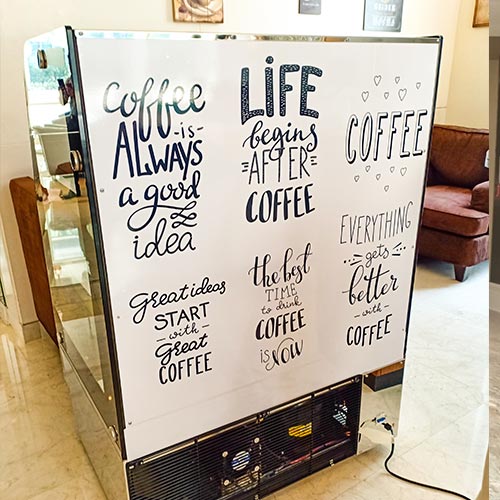 coffee
-is-
ALWAYS
a good
idea
LIFE
begins
AFTER
COFFEE
COFFEE
Great ideas
START
-with-
Great
COFFEE
the best
TIME
to drink
COFFEE
is NOW
EVERYTHING
gets
better
-with-
COFFEE